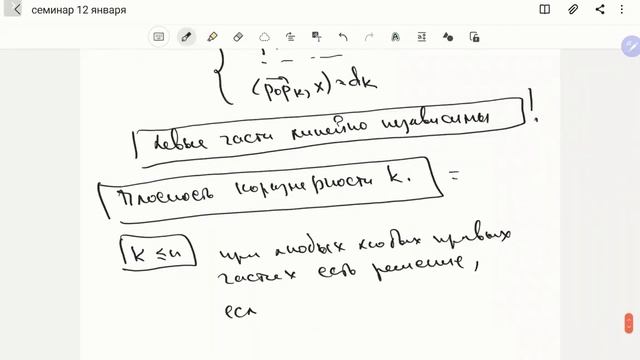 семинар 12 января
(p₀pₖ, x) = dk
Левые части линейно независимы !
Плоскость коразмерности k. =
k ≤ n при любых правых
частях есть решение,
есл